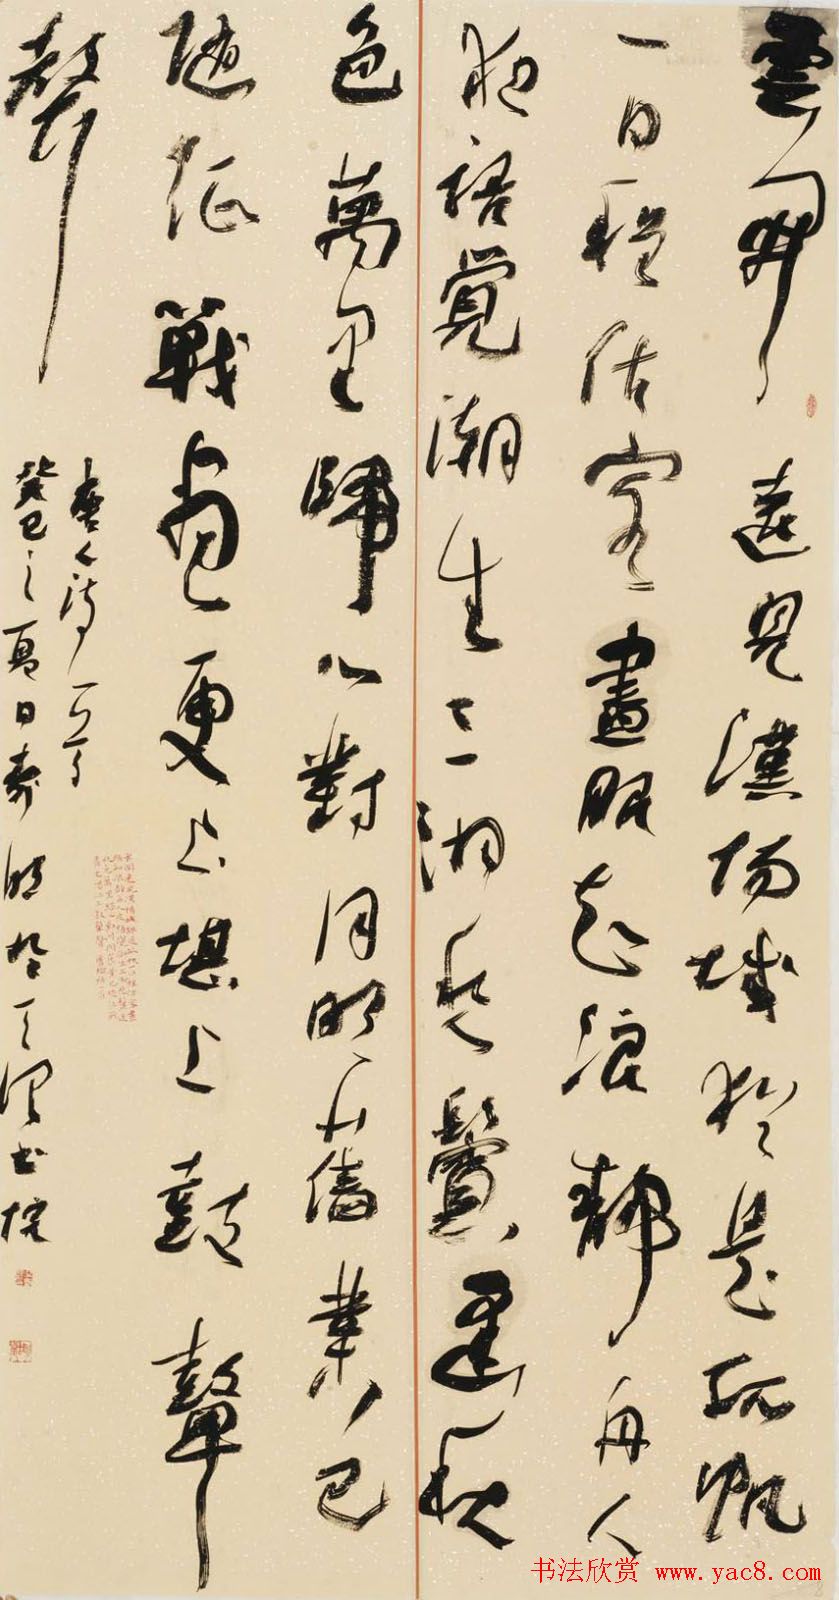 雲開遠見漢陽城猶是孤帆
一日程估客晝眠知浪靜舟人
夜語覺潮生三湘愁鬢逢秋
色萬里歸心對月明舊業已
隨征戰盡更上堪上鼓鼙
聲
唐人詩一首
癸巳之夏日
书法欣赏 www.yac8.com